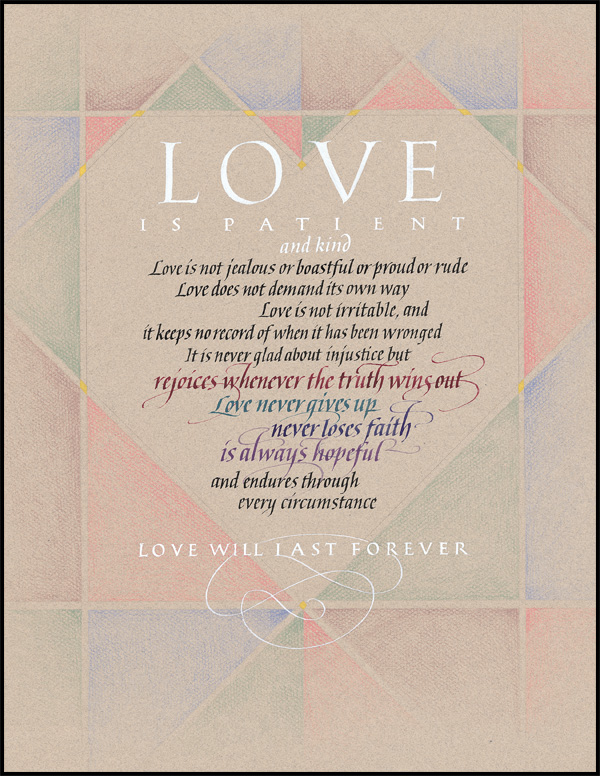 LOVE
IS PATIENT
and kind
Love is not jealous or boastful or proud or rude
Love does not demand its own way
Love is not irritable, and
it keeps no record of when it has been wronged
It is never glad about injustice but
rejoices whenever the truth wins out
Love never gives up
never loses faith
is always hopeful
and endures through
every circumstance
LOVE WILL LAST FOREVER